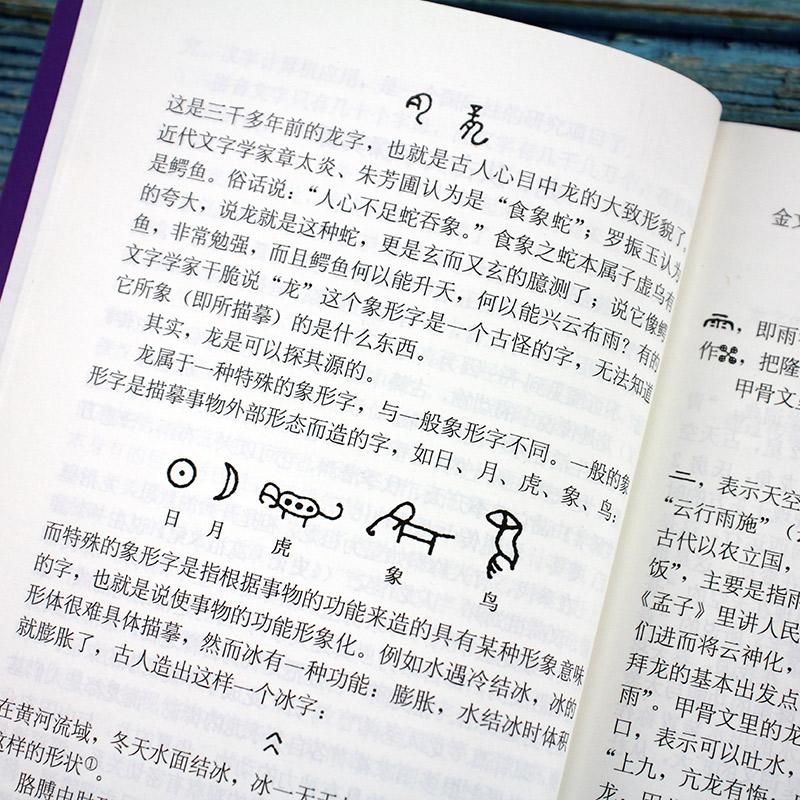 这是三千多年前的龙字，也就是古人心目中龙的大致形貌了。
近代文字学家章太炎、朱芳圃认为是“食象蛇”；罗振玉认为
是鳄鱼。俗话说：“人心不足蛇吞象。”食象之蛇本属子虚乌有
的夸大，说龙就是这种蛇，更是玄而又玄的臆测了；说它像鳄
鱼，非常勉强，而且鳄鱼何以能升天，何以能兴云布雨？有的
文字学家干脆说“龙”这个象形字是一个古怪的字，无法知道
它所象（即所描摹）的是什么东西。
其实，龙是可以探其源的。
龙属于一种特殊的象形字，与一般象形字不同。一般的象
形字是描摹事物外部形态而造的字，如日、月、虎、象、鸟：
日 月 虎 象 鸟
而特殊的象形字是指根据事物的功能来造的具有某种形象意味
的字，也就是说使事物的功能形象化。例如水遇冷结冰，冰的
形体很难具体描摹，然而冰有一种功能：膨胀，水结冰时体积
就膨胀了，古人造出这样一个冰字：
在黄河流域，冬天水面结冰，冰一天天
这样的形状①。
胳膊由肘
金文
，即雨
作，把隆
甲骨文
二，表示天空
“云行雨施”
古代以农立国，
饭”，主要是指雨
《孟子》里讲人民
们进而将云神化，
拜龙的基本出发点
雨”。甲骨文里的龙
口，表示可以吐水，
“上九，亢龙有悔，